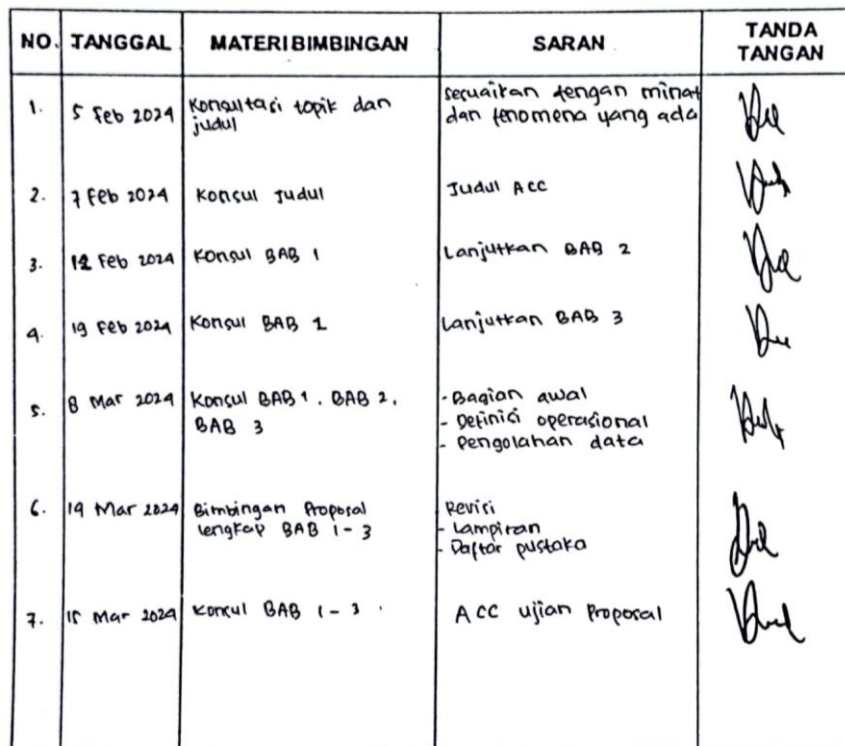 NO. TANGGAL MATERI BIMBINGAN SARAN TANDA TANGAN
1. 5 Feb 2024 Konsultasi topik dan judul Sesuaikan dengan minat dan fenomena yang ada
2. 7 Feb 2024 Konsul Judul Judul ACC
3. 12 Feb 2024 Konsul BAB 1 Lanjutkan BAB 2
4. 19 Feb 2024 Konsul BAB 2 Lanjutkan BAB 3
5. 8 Mar 2024 Konsul BAB 1, BAB 2, BAB 3 - Bagian awal
- Definisi operasional
- Pengolahan data
6. 14 Mar 2024 Bimbingan Proposal lengkap BAB 1 - 3 Revisi
- Lampiran
- Daftar pustaka
7. 15 Mar 2024 Konsul BAB 1 - 3 . ACC ujian Proposal